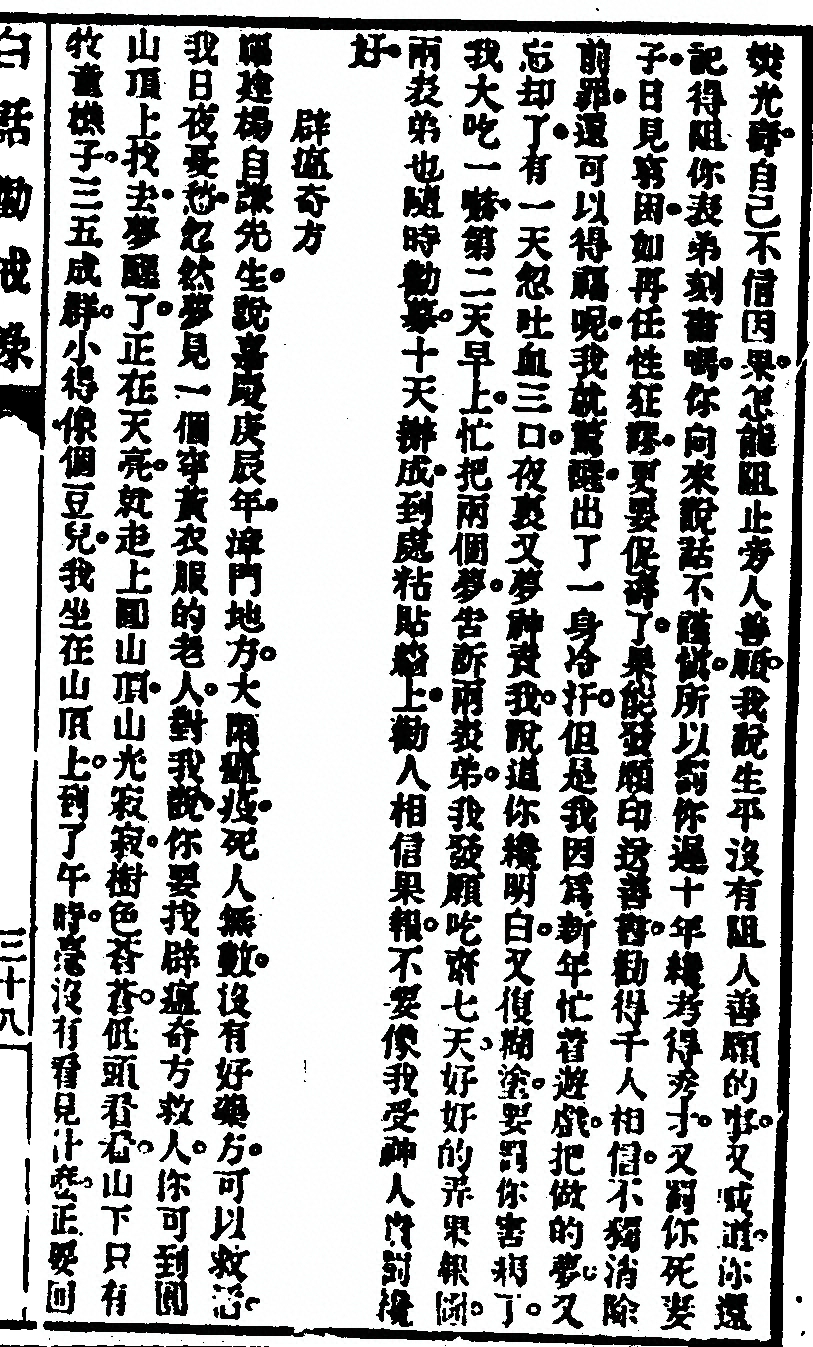 熒光齊自己不信因果怎能阻止旁人善願我說生平沒有阻人善願的事又喊道你還
記得阻你表弟刻書嗎你向來說話不謹慎所以罰你遲十年纔考得秀才又罰你死妻
子日見窮困如再任性狂謬更要促壽了果能發願印送善書勸得千人相信不獨消除
前罪還可以得福呢我就驚醒出了一身冷汗但是我因爲新年忙着遊戲把做的夢又
忘却了有一天忽吐血三口夜裏又夢神責我說道你纔明白又復糊塗要罰你害病了
我大吃一嚇第二天早上忙把兩個夢告訴兩表弟我發願吃齋七天好好的弄果報圖
兩表弟也隨時勸募十天辦成到處粘貼牆上勸人相信果報不要像我受神人責罰纔
好
辟瘟奇方
福建楊自謙先生說嘉慶庚辰年漳門地方大鬧瘟疫死人無數沒有好藥方可以救活
我日夜憂愁忽然夢見一個穿黃衣服的老人對我說你要找辟瘟奇方救人你可到圓
山頂上找去夢醒了正在天亮就走上圓山頂山光寂寂樹色蒼蒼低頭看看山下只有
牧童樵子三五成群小得像個豆兒我坐在山頂上到了午時毫沒有看見什麼正要回
白話勸戒錄
三十八